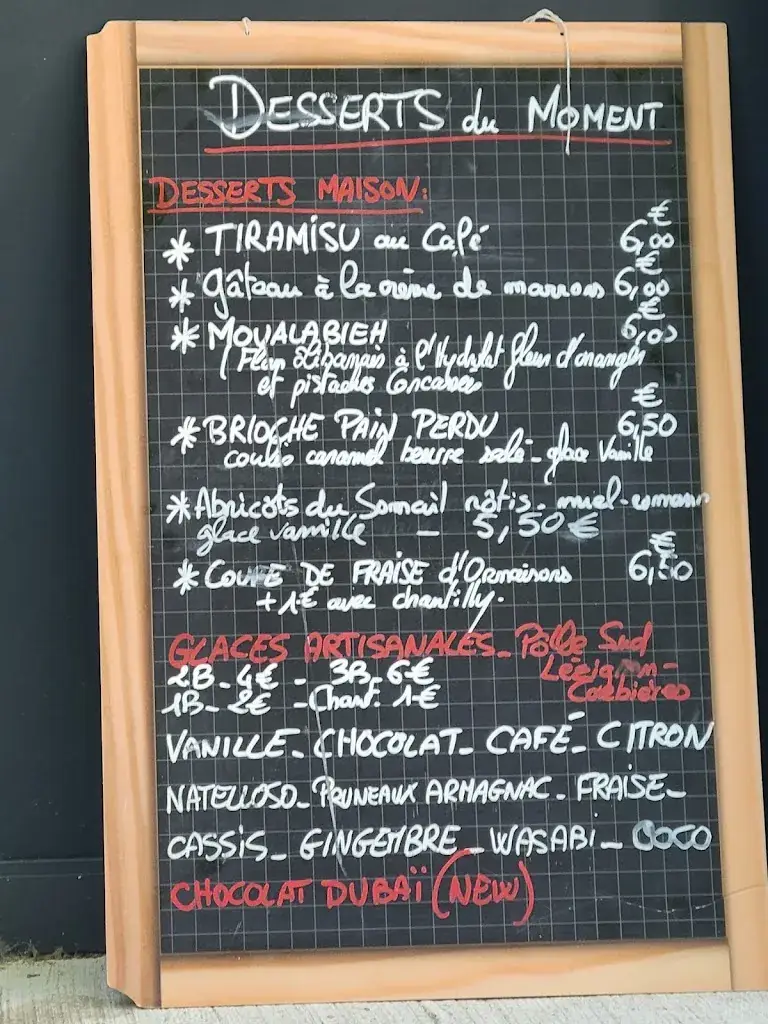 DESSERTS du MOMENT
DESSERTS MAISON:
* TIRAMISU au Café 6,00 €
* Gâteau à la crème de marrons 6,00 €
* MOUALABIEH 6,00 €
Flan Libanais à l'Hydrolat fleur d'oranger
et pistaches Concassées
* BRIOCHE PAIN PERDU 6,50 €
coulis caramel beurre salé - glace Vanille
* Abricots du Somail rôtis - miel - romarin
glace vanille - 5,50 €
* COUPE DE FRAISE d'Ornaisons 6,50 €
+ 1€ avec chantilly.
GLACES ARTISANALES - Pôle Sud
2B - 4€ - 3B - 6€ Lézignan-
1B - 2€ - Chant. 1€ Corbières
VANILLE - CHOCOLAT - CAFÉ - CITRON
NATELLOSO - PRUNEAUX ARMAGNAC - FRAISE -
CASSIS - GINGEMBRE - WASABI - COCO
CHOCOLAT DUBAÏ (NEW)